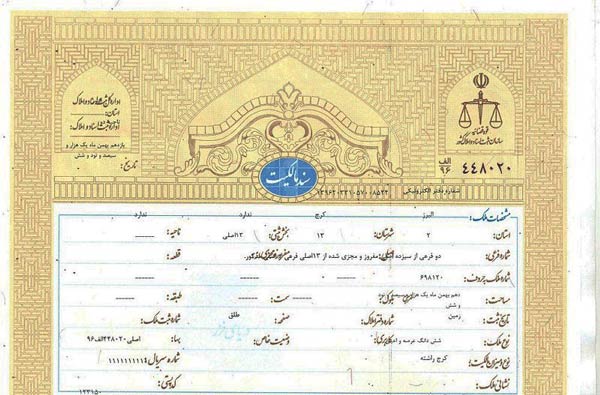 اداره کل ثبت اسناد و املاک
استان:
اداره ثبت اسناد و املاک:
یازدهم بهمن ماه یک هزار و
سیصد و نود و شش
تاریخ:
قوه قضائیه
سازمان ثبت اسناد و املاک کشور
الف
۹۶
۴۴۸۰۲۰
شماره دفتر الکترونیکی:
سند مالکیت
مشخصات ملک:
البرز
کرج
ندارد
ندارد
استان:
۲
شهرستان:
۱۳
بخش ثبتی:
۱۳اصلی
ناحیه:
------
شماره فرعی:
دو فرعی از سیزده اصلی مفروز و مجزی شده از ۱۳اصلی فرعی
قطعه:
------
شماره ملک بحروف:
۶۹۸۱۲۰
مساحت:
دهم بهمن ماه یک هزار و سیصد و نود
و شش
------
سمت:
------
طبقه:
------
تاریخ ثبت:
زمین
شماره دفتر املاک:
صفحه:
طلق
شماره ثبت ملک:
نوع ملک:
شش دانگ عرصه و
کاربری:
وضعیت خاص:
بها:
نوع و میزان مالکیت:
کرج راشته
شماره سریال:
نشانی ملک:
کد پستی:
دریای خزر